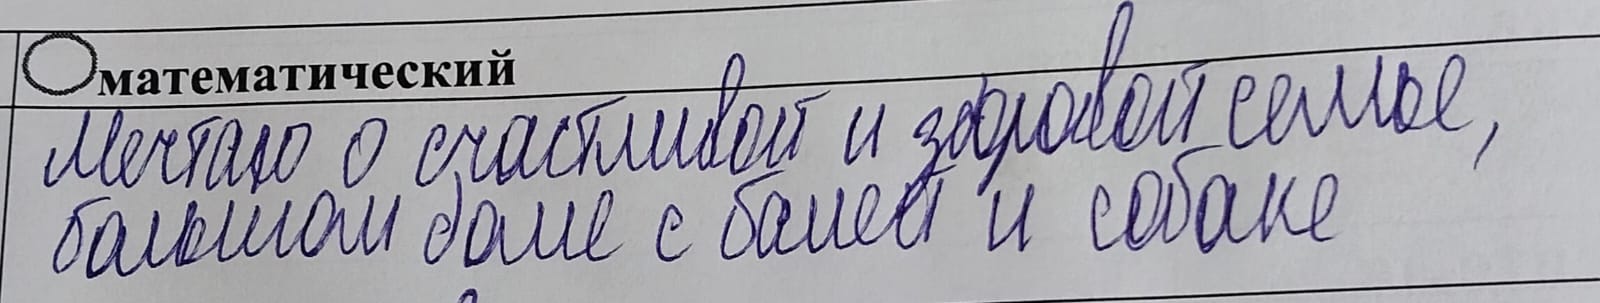 математический
Мечтаю о счастливой и здоровой семье,
большом доме с баней и собаке